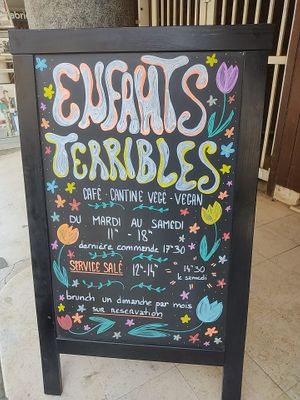 ENFANTS
TERRIBLES
CAFÉ · CANTINE VÉGÉ · VEGAN
DU MARDI AU SAMEDI
11H - 18H
dernière commande 17H30
SERVICE SALÉ 12H-14H - 14H30
le samedi
brunch un dimanche par mois
SUR RESERVATION